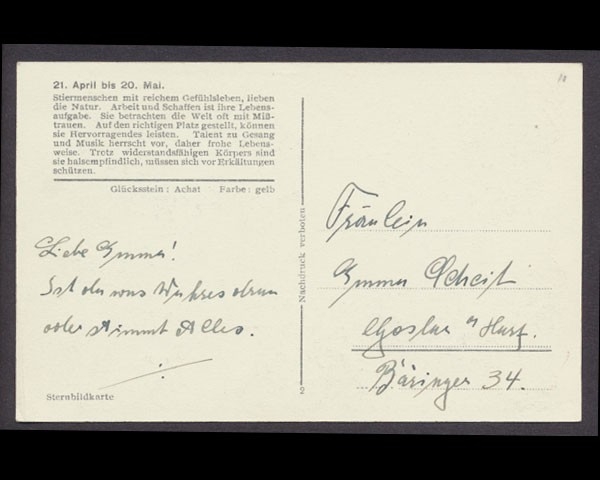 21. April bis 20. Mai.
Stiermenschen mit reichem Gefühlsleben, lieben
die Natur. Arbeit und Schaffen ist ihre Lebens-
aufgabe. Sie betrachten die Welt oft mit Miß-
trauen. Auf den richtigen Platz gestellt, können
sie Hervorragendes leisten. Talent zu Gesang
und Musik herrscht vor, daher frohe Lebens-
weise. Trotz widerstandsfähigen Körpers sind
sie halsempfindlich, müssen sich vor Erkältungen
schützen.
Glücksstein: Achat Farbe: gelb
Liebe Emma!
Ist da was Wahres dran
oder stimmt Alles.
Sternbildkarte
Nachdruck verboten
2
Fräulein
Emma Scheit
Goslar a Harz.
Bäringer 34.